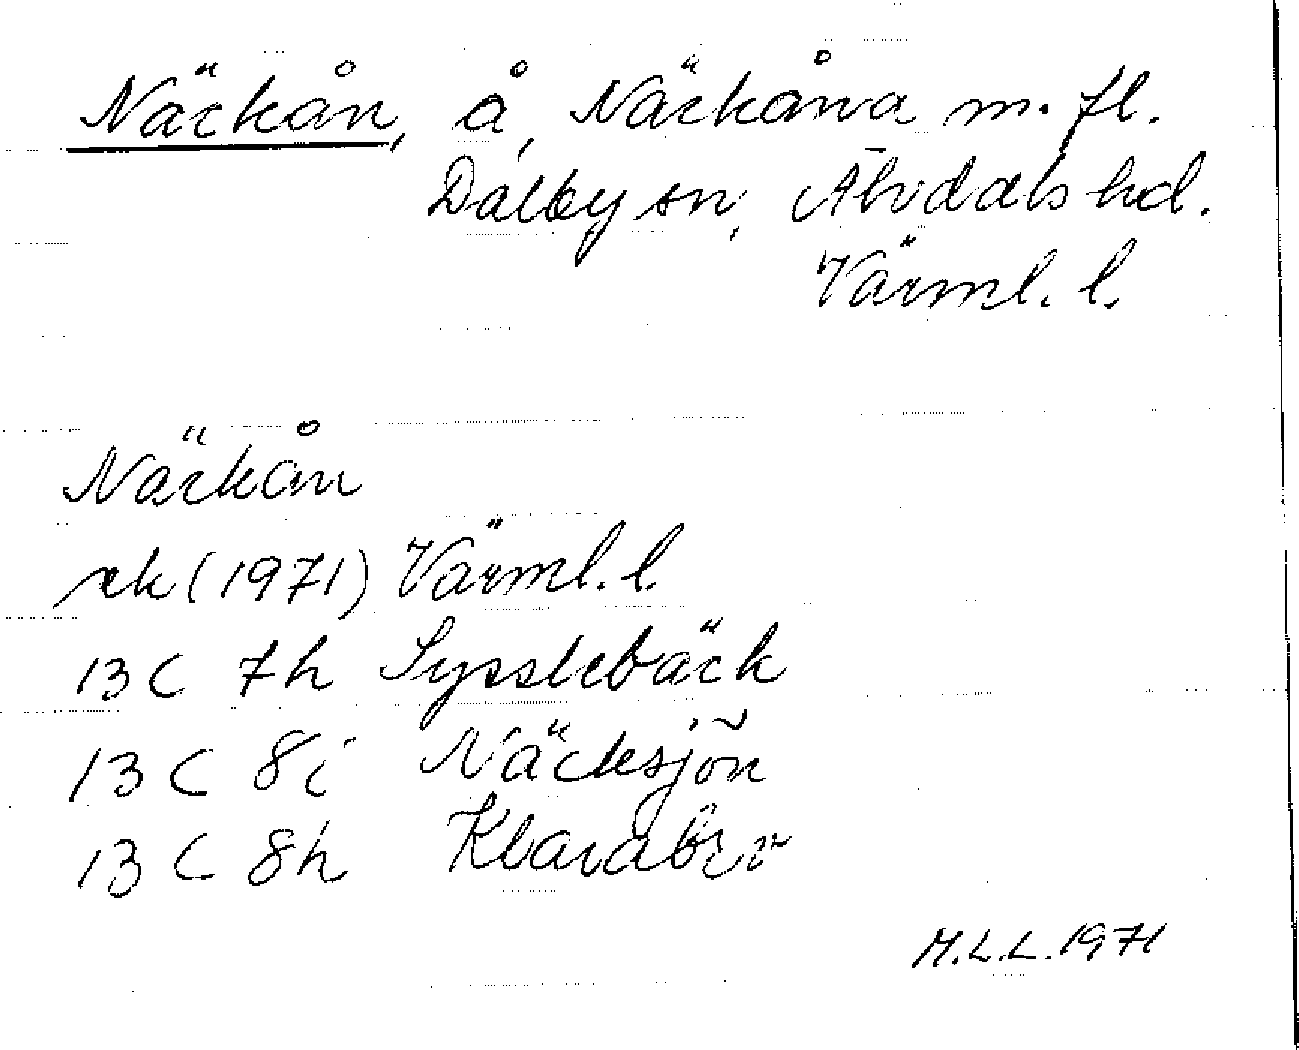 Näckån, å, Näckåna m. fl.
Dalby sn, Älvdals hd.
Värml. l.
Näckån
rk (1971) Värml. l.
13 C 7h Sysslebäck
13 C 8i Näcksjön
13 C 8h Klarabro
M.L.L. 1971